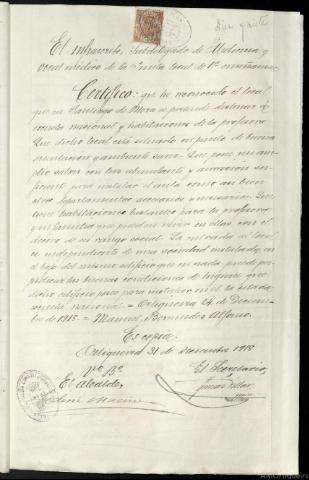 El infrascrito, Subdelegado de Medicina y
vocal médico de la Junta local de 1ª enseñanza
Certifico: que he reconocido el local
que en Santiago de Mera se pretende destinar á
escuela nacional y habitaciones de la profesora
Que dicho local está situado en punto de buena
orientacion y ambiente sano. Que posee un am-
plio salon con luz abundante y aireacion su-
ficiente para instalar el aula como asi bien
otros departamentos accesorios y necesarios. Que
tiene habitaciones bastantes para la profesora
y su familia que puedan vivir en ellas con el
decoro de su rango social. La entrada al local
es independiente de una sociedad instalada en
el bajo del mismo edificio que en nada puede per-
judicar las buenas condiciones de higiene que
dicho edificio posee para instalar en él la citada
escuela nacional = Ortigueira 24 de Diciem-
bre de 1918. = Manuel Bermudez Alfonso.
Es copia
Ortigueira 31 de Diciembre 1918
Vº Bº
El Secretario,
El Alcalde,
AMOrtigueira